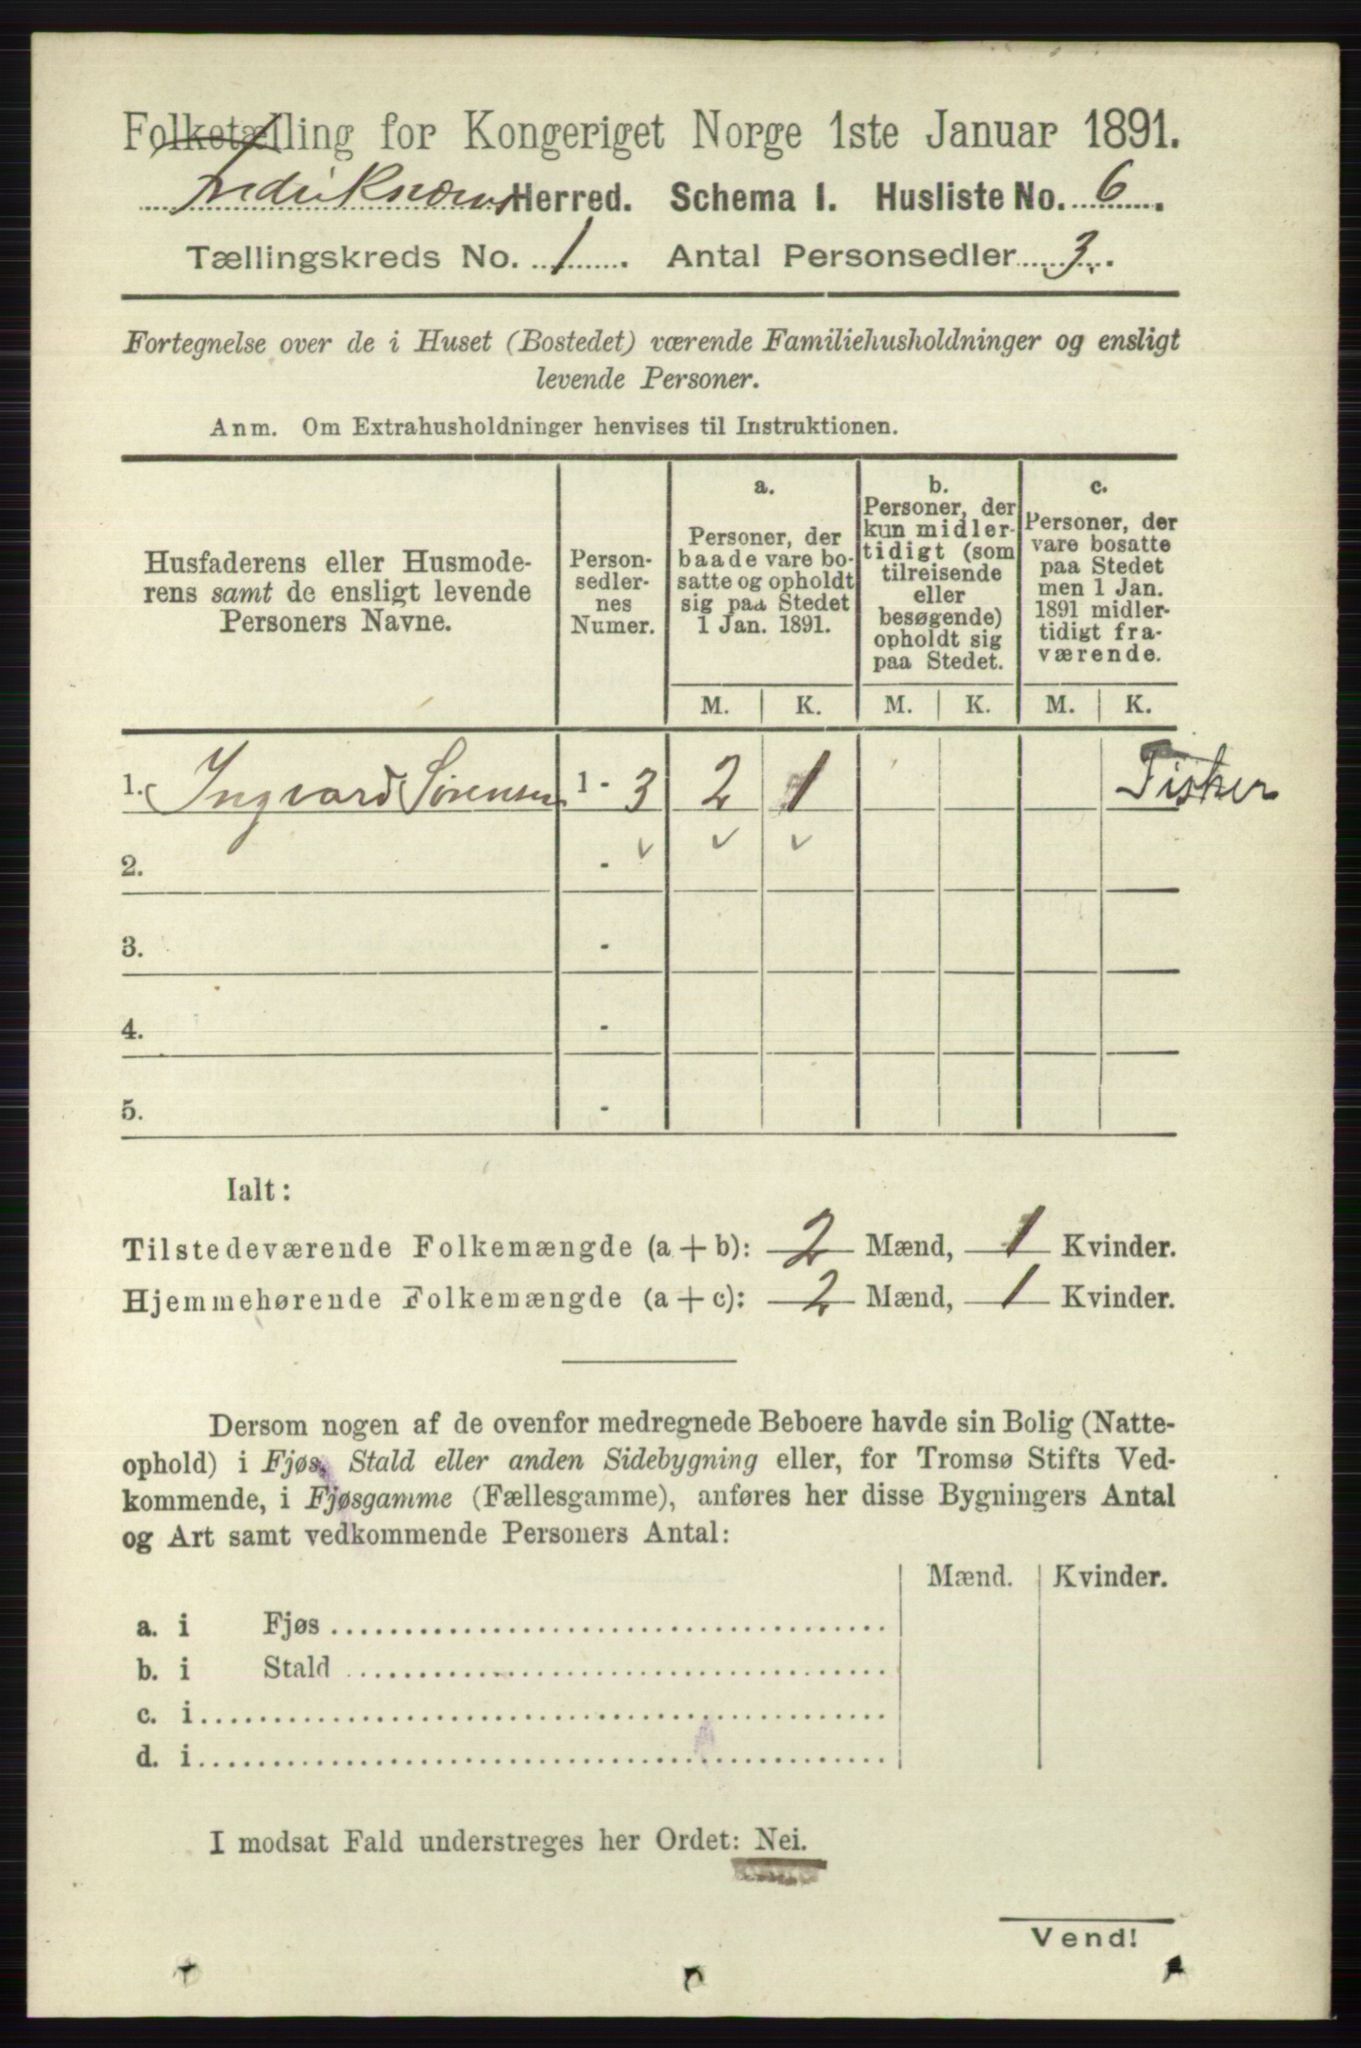 Folketælling for Kongeriget Norge 1ste Januar 1891.
Frederiksværns Herred. Schema I. Husliste No. 6.
Tællingskreds No. 1. Antal Personsedler 3.
Fortegnelse over de i Huset (Bostedet) værende Familiehusholdninger og ensligt
levende Personer.
Anm. Om Extrahusholdninger henvises til Instruktionen.
Husfaderens eller Husmode-
rens samt de ensligt levende
Personers Navne.
Person-
sedler-
nes
Numer.
a.
Personer, der
baade vare bo-
satte og opholdt
sig paa Stedet
1 Jan. 1891.
b.
Personer, der
kun midler-
tidigt (som
tilreisende
eller
besøgende)
opholdt sig
paa Stedet.
c.
Personer, der
vare bosatte
paa Stedet
men 1 Jan.
1891 midler-
tidigt fra-
værende.
M. K. M. K. M. K.
1. Ingvard Sørensen 1 - 3 2 1 Fisker
2. -
3. -
4. -
5. -
Ialt:
Tilstedeværende Folkemængde (a + b): 2 Mænd, 1 Kvinder.
Hjemmehørende Folkemængde (a + c): 2 Mænd, 1 Kvinder.
Dersom nogen af de ovenfor medregnede Beboere havde sin Bolig (Natte-
ophold) i Fjøs, Stald eller anden Sidebygning eller, for Tromsø Stifts Ved-
kommende, i Fjøsgamme (Fællesgamme), anføres her disse Bygningers Antal
og Art samt vedkommende Personers Antal:
Mænd. Kvinder.
a. i Fjøs
b. i Stald
c. i
d. i
I modsat Fald understreges her Ordet: Nei.
Vend!